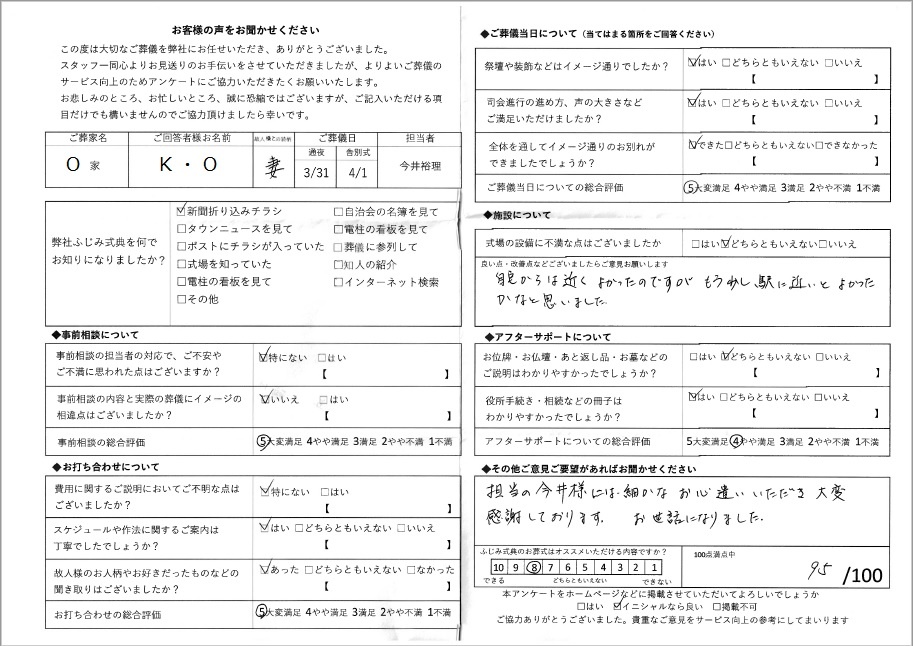 お客様の声をお聞かせください
この度は大切なご葬儀を弊社にお任せいただき、ありがとうございました。
スタッフ一同心よりお見送りのお手伝いをさせていただきましたが、よりよいご葬儀の
サービス向上のためアンケートにご協力いただきたくお願いいたします。
お悲しみのところ、お忙しいところ、誠に恐縮ではございますが、ご記入いただける項
目だけでも構いませんのでご協力頂けましたら幸いです。
ご葬家名 ご回答者様お名前 故人様との続柄 ご葬儀日 担当者
通夜 告別式
O 家 K・O 妻 3/31 4/1 今井裕理
弊社ふじみ式典を何で
お知りになりましたか？
☑新聞折り込みチラシ □自治会の名簿を見て
□タウンニュースを見て □電柱の看板を見て
□ポストにチラシが入っていた □葬儀に参列して
□式場を知っていた □知人の紹介
□電柱の看板を見て □インターネット検索
□その他
◆事前相談について
事前相談の担当者の対応で、ご不安や
ご不満に思われた点はございますか？
☑特にない □はい
【 】
事前相談の内容と実際の葬儀にイメージの
相違点はございましたか？
☑いいえ □はい
【 】
事前相談の総合評価 ⑤大変満足 4やや満足 3満足 2やや不満 1不満
◆お打ち合わせについて
費用に関するご説明においてご不明な点は
ございましたか？
☑特にない □はい
【 】
スケジュールや作法に関するご案内は
丁寧でしたでしょうか？
☑はい □どちらともいえない □いいえ
【 】
故人様のお人柄やお好きだったものなどの
聞き取りはございましたか？
☑あった □どちらともいえない □なかった
【 】
お打ち合わせの総合評価 ⑤大変満足 4やや満足 3満足 2やや不満 1不満
◆ご葬儀当日について（当てはまる箇所をご回答ください）
祭壇や装飾などはイメージ通りでしたか？ ☑はい □どちらともいえない □いいえ
【 】
司会進行の進め方、声の大きさなど
ご満足いただけましたか？
☑はい □どちらともいえない □いいえ
【 】
全体を通してイメージ通りのお別れが
できましたでしょうか？
☑できた□どちらともいえない□できなかった
【 】
ご葬儀当日についての総合評価 ⑤大変満足 4やや満足 3満足 2やや不満 1不満
◆施設について
式場の設備に不満な点はございましたか □はい☑どちらともいえない□いいえ
良い点・改善点などございましたらご意見お願いします
自宅からは近く よかったのですが もう少し 駅に近いと よかった
かなと思いました
◆アフターサポートについて
お位牌・お仏壇・あと返し品・お墓などの
ご説明はわかりやすかったでしょうか？
□はい ☑どちらともいえない □いいえ
【 】
役所手続き・相続などの冊子は
わかりやすかったでしょうか？
☑はい □どちらともいえない □いいえ
【 】
アフターサポートについての総合評価 5大変満足 ④やや満足 3満足 2やや不満 1不満
◆その他ご意見ご要望があればお聞かせください
担当の今井様には 細かな お心遣い いただき 大変
感謝しております。 お世話になりました。
ふじみ式典のお葬式はオススメいただける内容ですか？ 100点満点中
10 9 ⑧ 7 6 5 4 3 2 1
できる どちらともいえない できない
95 /100
本アンケートをホームページなどに掲載させていただいてよろしいでしょうか
□はい ☑イニシャルなら良い □掲載不可
ご協力ありがとうございました。貴重なご意見をサービス向上の参考にしてまいります